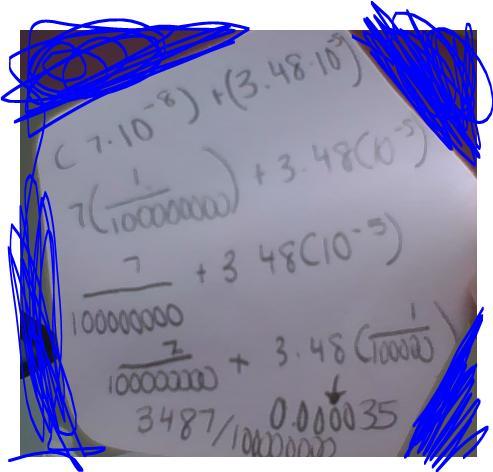 (7·10⁻⁸) + (3.48·10⁻⁵)
7(1/100000000) + 3.48(10⁻⁵)
7/100000000 + 3 48(10⁻⁵)
7/100000000 + 3.48(1/100000)
3487/100000000 0.000035